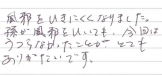 風邪をひきにくくなりました。
孫が風邪をひいても、今回は
うつらなかったことが とても
ありがたいです。